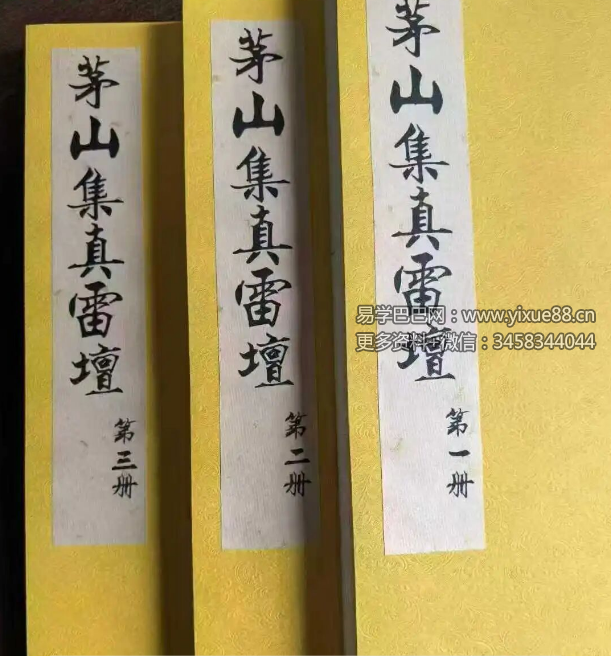 茅山集真雷壇
第三册
茅山集真雷壇
第二册
茅山集真雷壇
第一册
易学巴巴网：www.yixue88.cn
更多资料+微信：3458344044